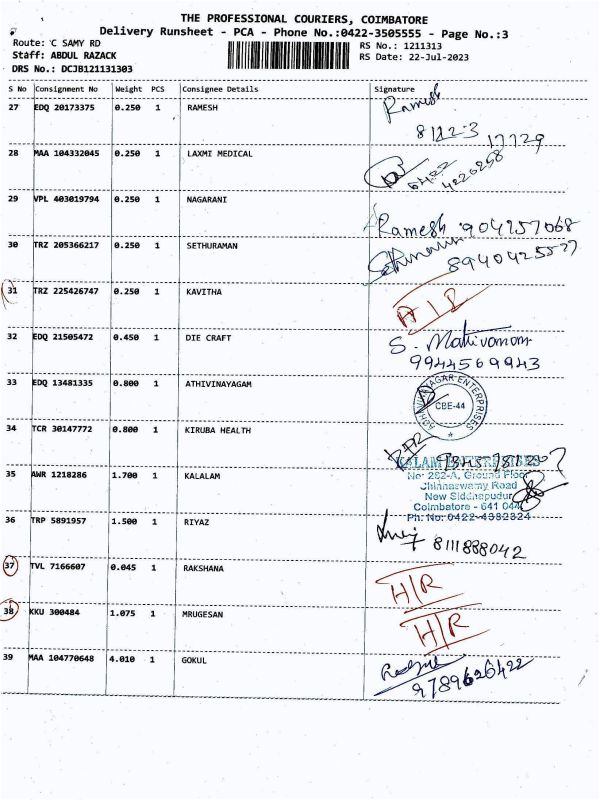 THE PROFESSIONAL COURIERS, COIMBATORE
Delivery Runsheet - PCA - Phone No.:0422-3505555 - Page No.:3
Route: 'C SAMY RD
RS No.: 1211313
Staff: ABDUL RAZACK
RS Date: 22-Jul-2023
DRS No.: DCJB121131303
S No Consignment No Weight PCS Consignee Details Signature
27 EDQ 20173375 0.250 1 RAMESH Ramesh
28 MAA 104332045 0.250 1 LAXMI MEDICAL
29 VPL 403019794 0.250 1 NAGARANI Ramesh 904257068
30 TRZ 205366217 0.250 1 SETHURAMAN
8940425527
31 TRZ 225426747 0.250 1 KAVITHA
32 EDQ 21505472 0.450 1 DIE CRAFT S. Mathivanan
9944569943
33 EDQ 13481335 0.800 1 ATHIVINAYAGAM
CBE-44
34 TCR 30147772 0.800 1 KIRUBA HEALTH
35 AWR 1218286 1.700 1 KALALAM
No 282-A, Ground Floor
Chinnaswamy Road
New Siddhapudur
Coimbatore - 641 044
Ph. No: 0422-4382324
36 TRP 5891957 1.500 1 RIYAZ
8111888042
37 TVL 7166607 0.045 1 RAKSHANA H/R
38 KKU 300484 1.075 1 MRUGESAN H/R
39 MAA 104770648 4.010 1 GOKUL
9789626422